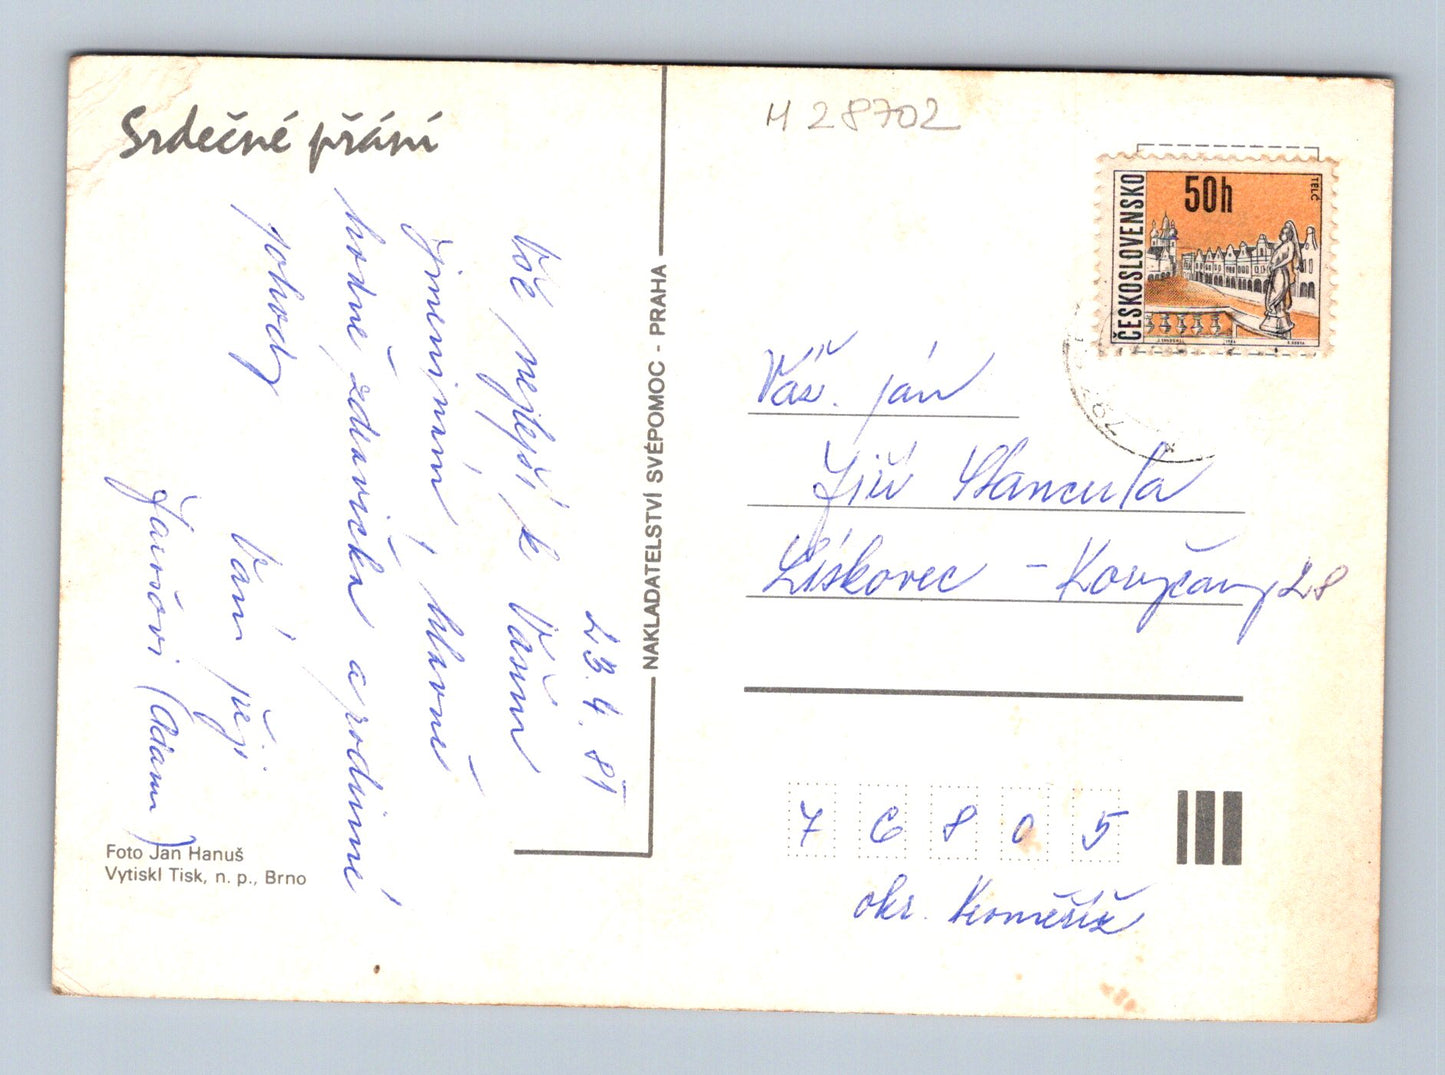 Srdečné přání
23. 4. 81
Vše nejlepší k Vašim
jmeninám, hlavně
hodně zdravíčka a rodinné
pohody
Vám přejí
Jarošovi (Adam)
Foto Jan Hanuš
Vytiskl Tisk, n. p., Brno
NAKLADATELSTVÍ SVÉPOMOC - PRAHA
M 28702
ČESKOSLOVENSKO
50h
TELČ
Váž. pán
Jiří Stancula
Lískovec - Koryčany 28
76805
okr. Kroměříž